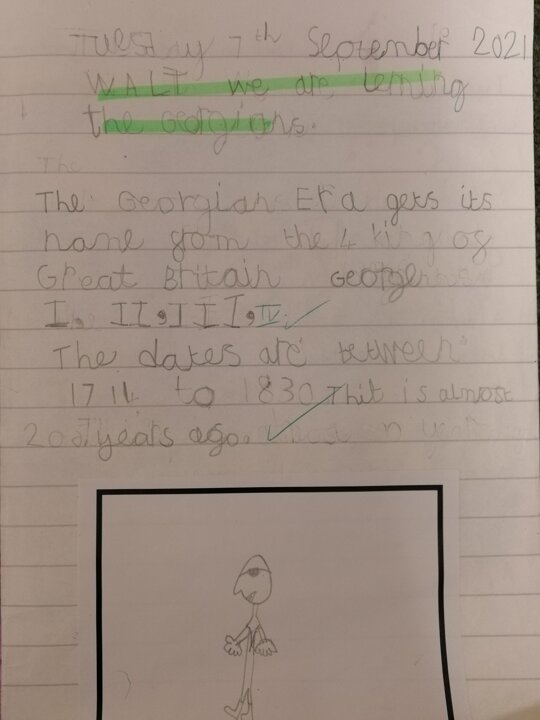 Tuesday 7th September 2021
WALT we are lerning
the Georgians.
The
The Georgian Era gets its
name from the 4 king of
Great Britain George
I, II, III, IV
The dates are between
17 to 1830 Thit is almost
years ago.